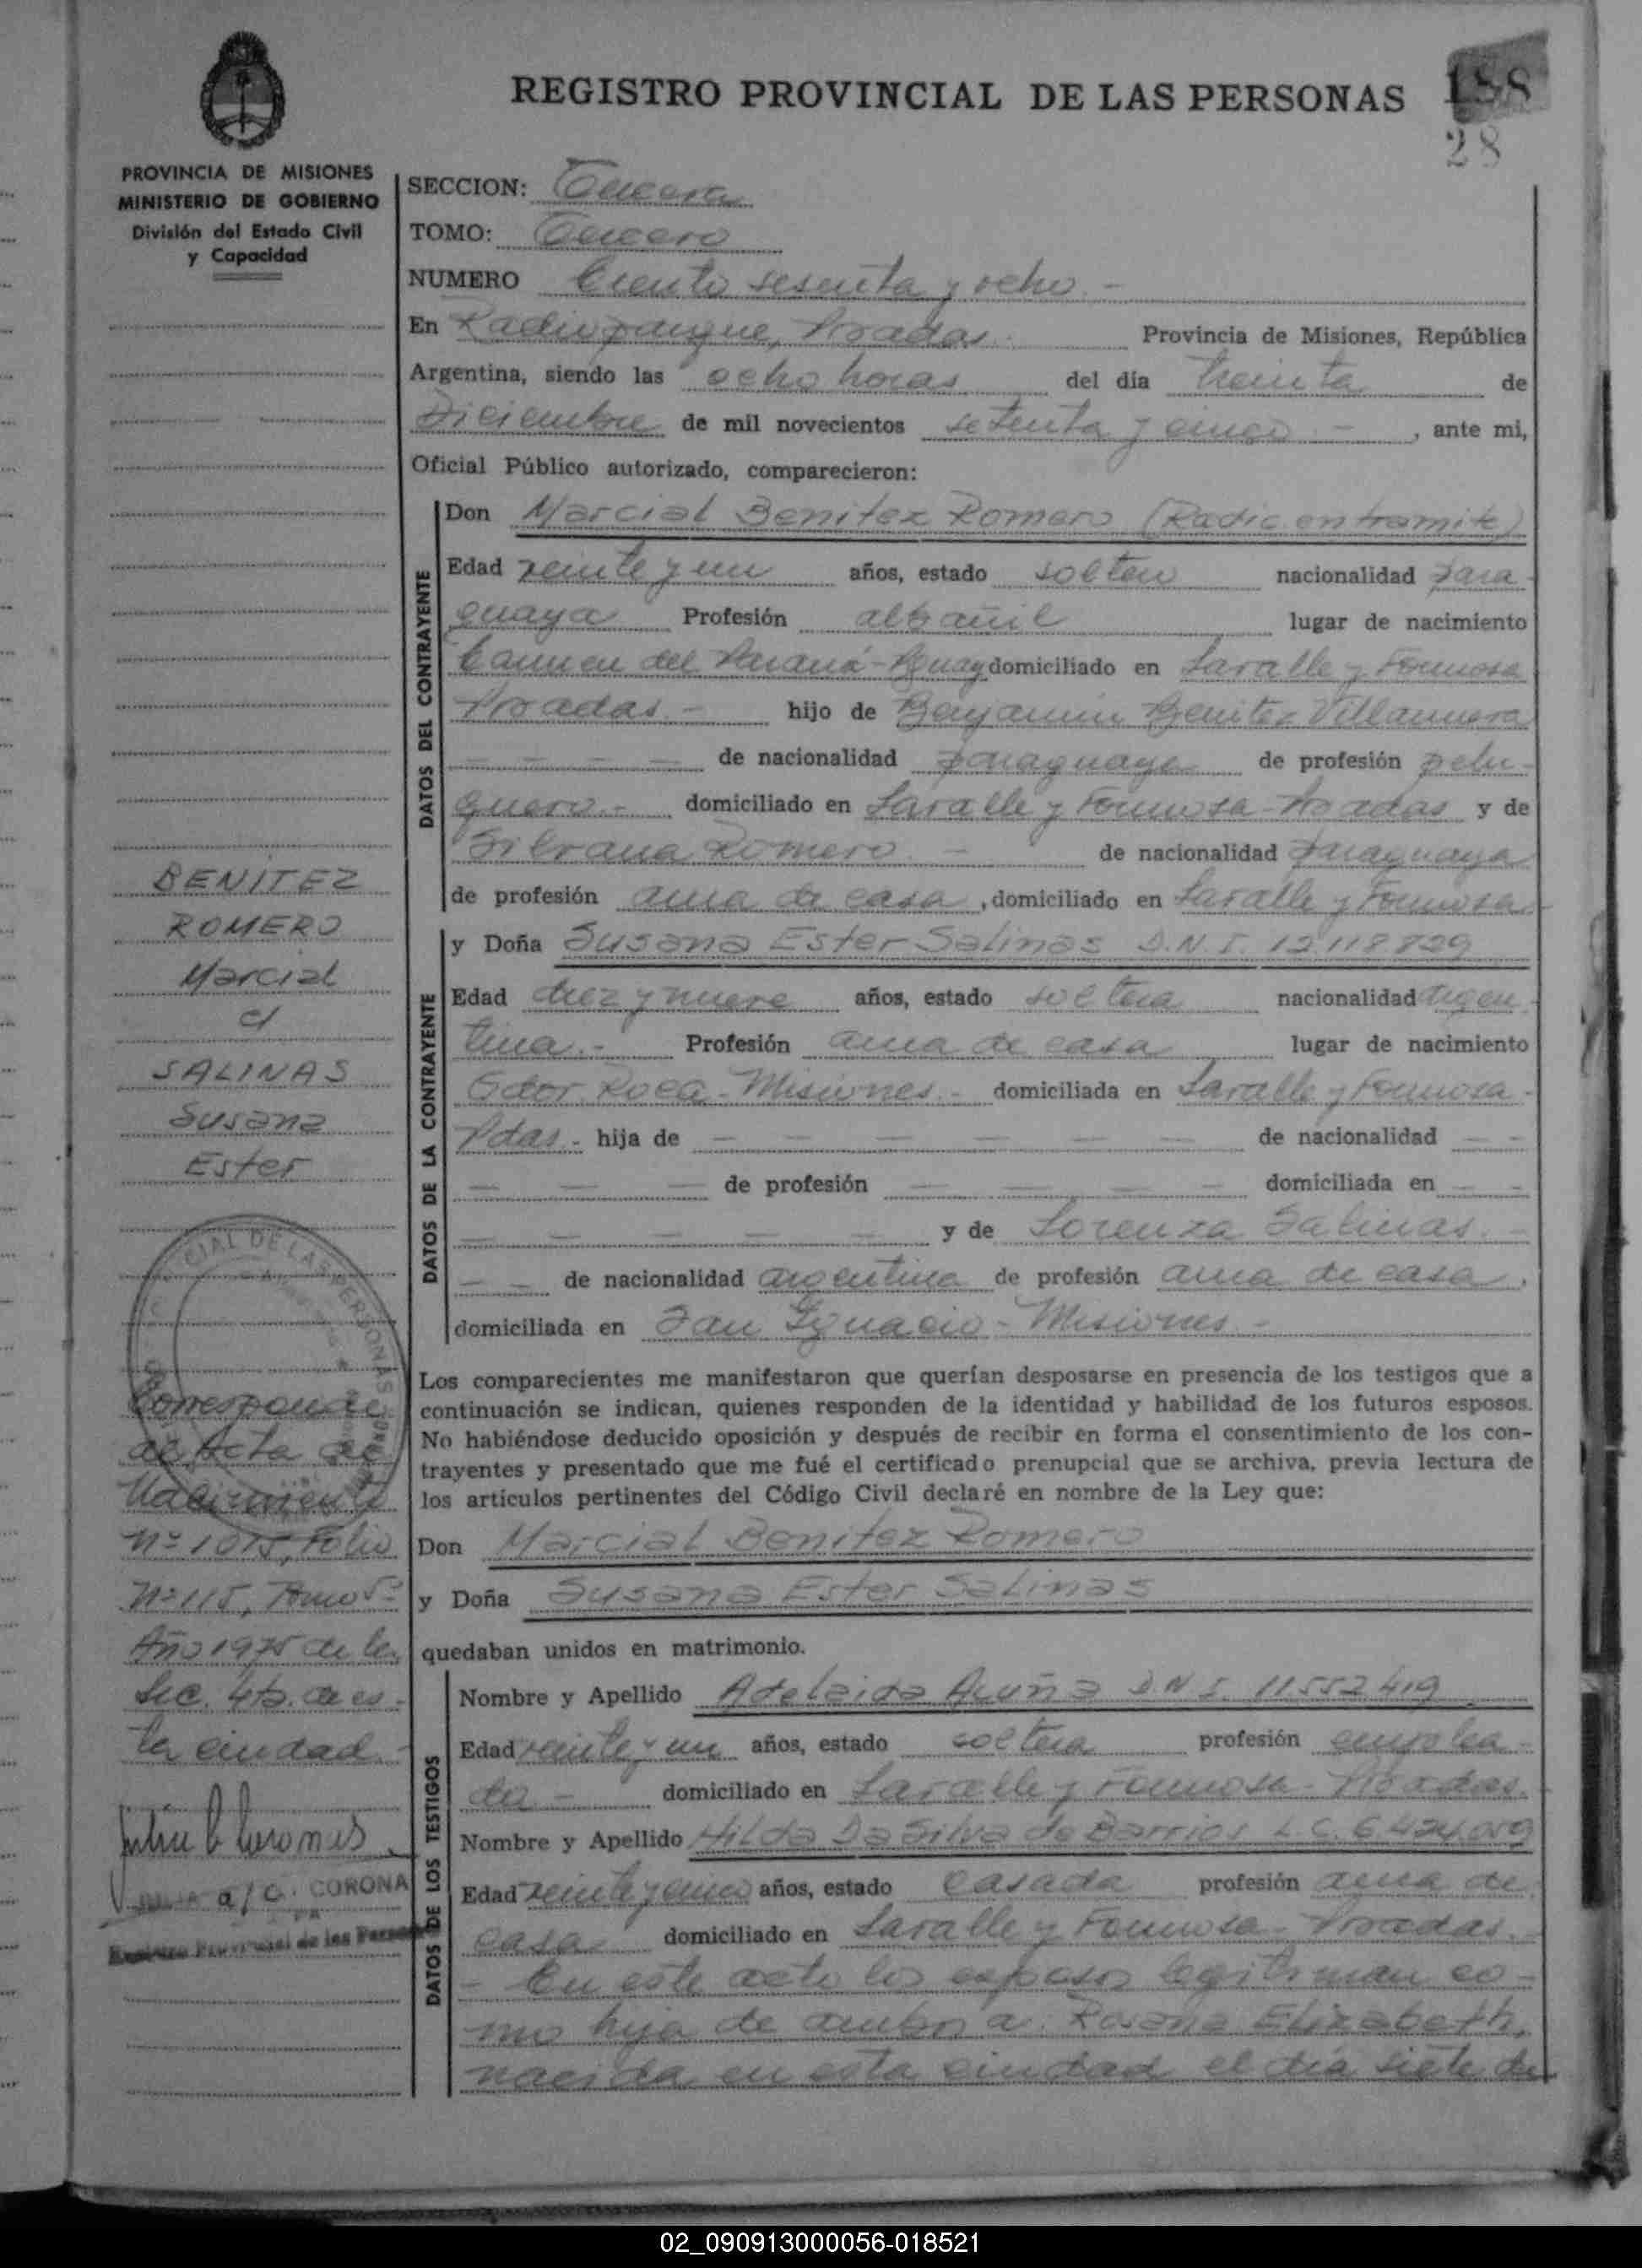 REGISTRO PROVINCIAL DE LAS PERSONAS
188
28
PROVINCIA DE MISIONES
MINISTERIO DE GOBIERNO
División del Estado Civil
y Capacidad
SECCION: Tercera
TOMO: Tercero
NUMERO Ciento sesenta y ocho -
En Radioparque, Posadas. Provincia de Misiones, República
Argentina, siendo las ocho horas del día treinta de
Diciembre de mil novecientos setenta y cinco - , ante mi,
Oficial Público autorizado, comparecieron:
DATOS DEL CONTRAYENTE
Don Marcial Benitez Romero (Radic. en tramite)
Edad veinte y un años, estado soltero nacionalidad para-
guaya Profesión albañil lugar de nacimiento
Carmen del Paraná - Pguay domiciliado en Lavalle y Formosa
Posadas - hijo de Benjamin Benitez Villanueva
- - - - de nacionalidad paraguaya de profesión pelu-
quero - domiciliado en Lavalle y Formosa - Posadas y de
Silvana Romero - de nacionalidad paraguaya
de profesión ama de casa, domiciliado en Lavalle y Formosa
DATOS DE LA CONTRAYENTE
y Doña Susana Ester Salinas D.N.I. 12.118.829
Edad diez y nueve años, estado soltera nacionalidad argen-
tina.- Profesión ama de casa lugar de nacimiento
Gdor. Roca - Misiones.- domiciliada en Lavalle y Formosa -
Pdas.- hija de - - - - - - de nacionalidad - -
- - - de profesión - - - - domiciliada en - -
- - - - - y de Lorenza Salinas. -
- - de nacionalidad argentina de profesión ama de casa,
domiciliada en San Ignacio - Misiones. -
Los comparecientes me manifestaron que querían desposarse en presencia de los testigos que a
continuación se indican, quienes responden de la identidad y habilidad de los futuros esposos.
No habiéndose deducido oposición y después de recibir en forma el consentimiento de los con-
trayentes y presentado que me fué el certificado prenupcial que se archiva, previa lectura de
los artículos pertinentes del Código Civil declaré en nombre de la Ley que:
Don Marcial Benitez Romero
y Doña Susana Ester Salinas
quedaban unidos en matrimonio.
DATOS DE LOS TESTIGOS
Nombre y Apellido Adelaida Acuña D.N.I. 11.552.419
Edad veinte y un años, estado soltera profesión emplea-
da - domiciliado en Lavalle y Formosa - Posadas.
Nombre y Apellido Hilda Da Silva de Barrios L.C. 6.424.059
Edad veinte y cinco años, estado casada profesión ama de
casa domiciliado en Lavalle y Formosa - Posadas. -
- En este acto los esposos legitiman co-
mo hija de ambos a: Rosana Elizabeth,
nacida en esta ciudad el día siete de
BENITEZ
ROMERO
Marcial
c/
SALINAS
Susana
Ester
Corresponde
al Acta de
Nacimiento
Nº 1015, Folio
Nº 115, Tomo 5º
Año 1975 de la
Sec. 4ta. de es-
ta ciudad.
a/c. CORONA
02_090913000056-018521